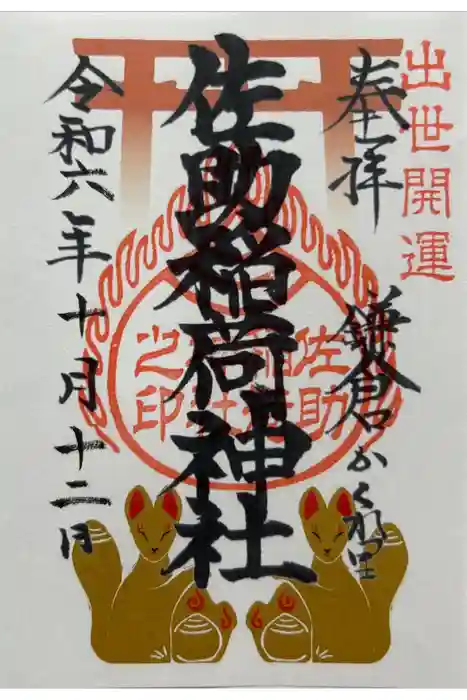 出世開運
奉拝
鎌倉かくれ里
佐助稲荷神社
佐助
之印
令和六年十月十二日